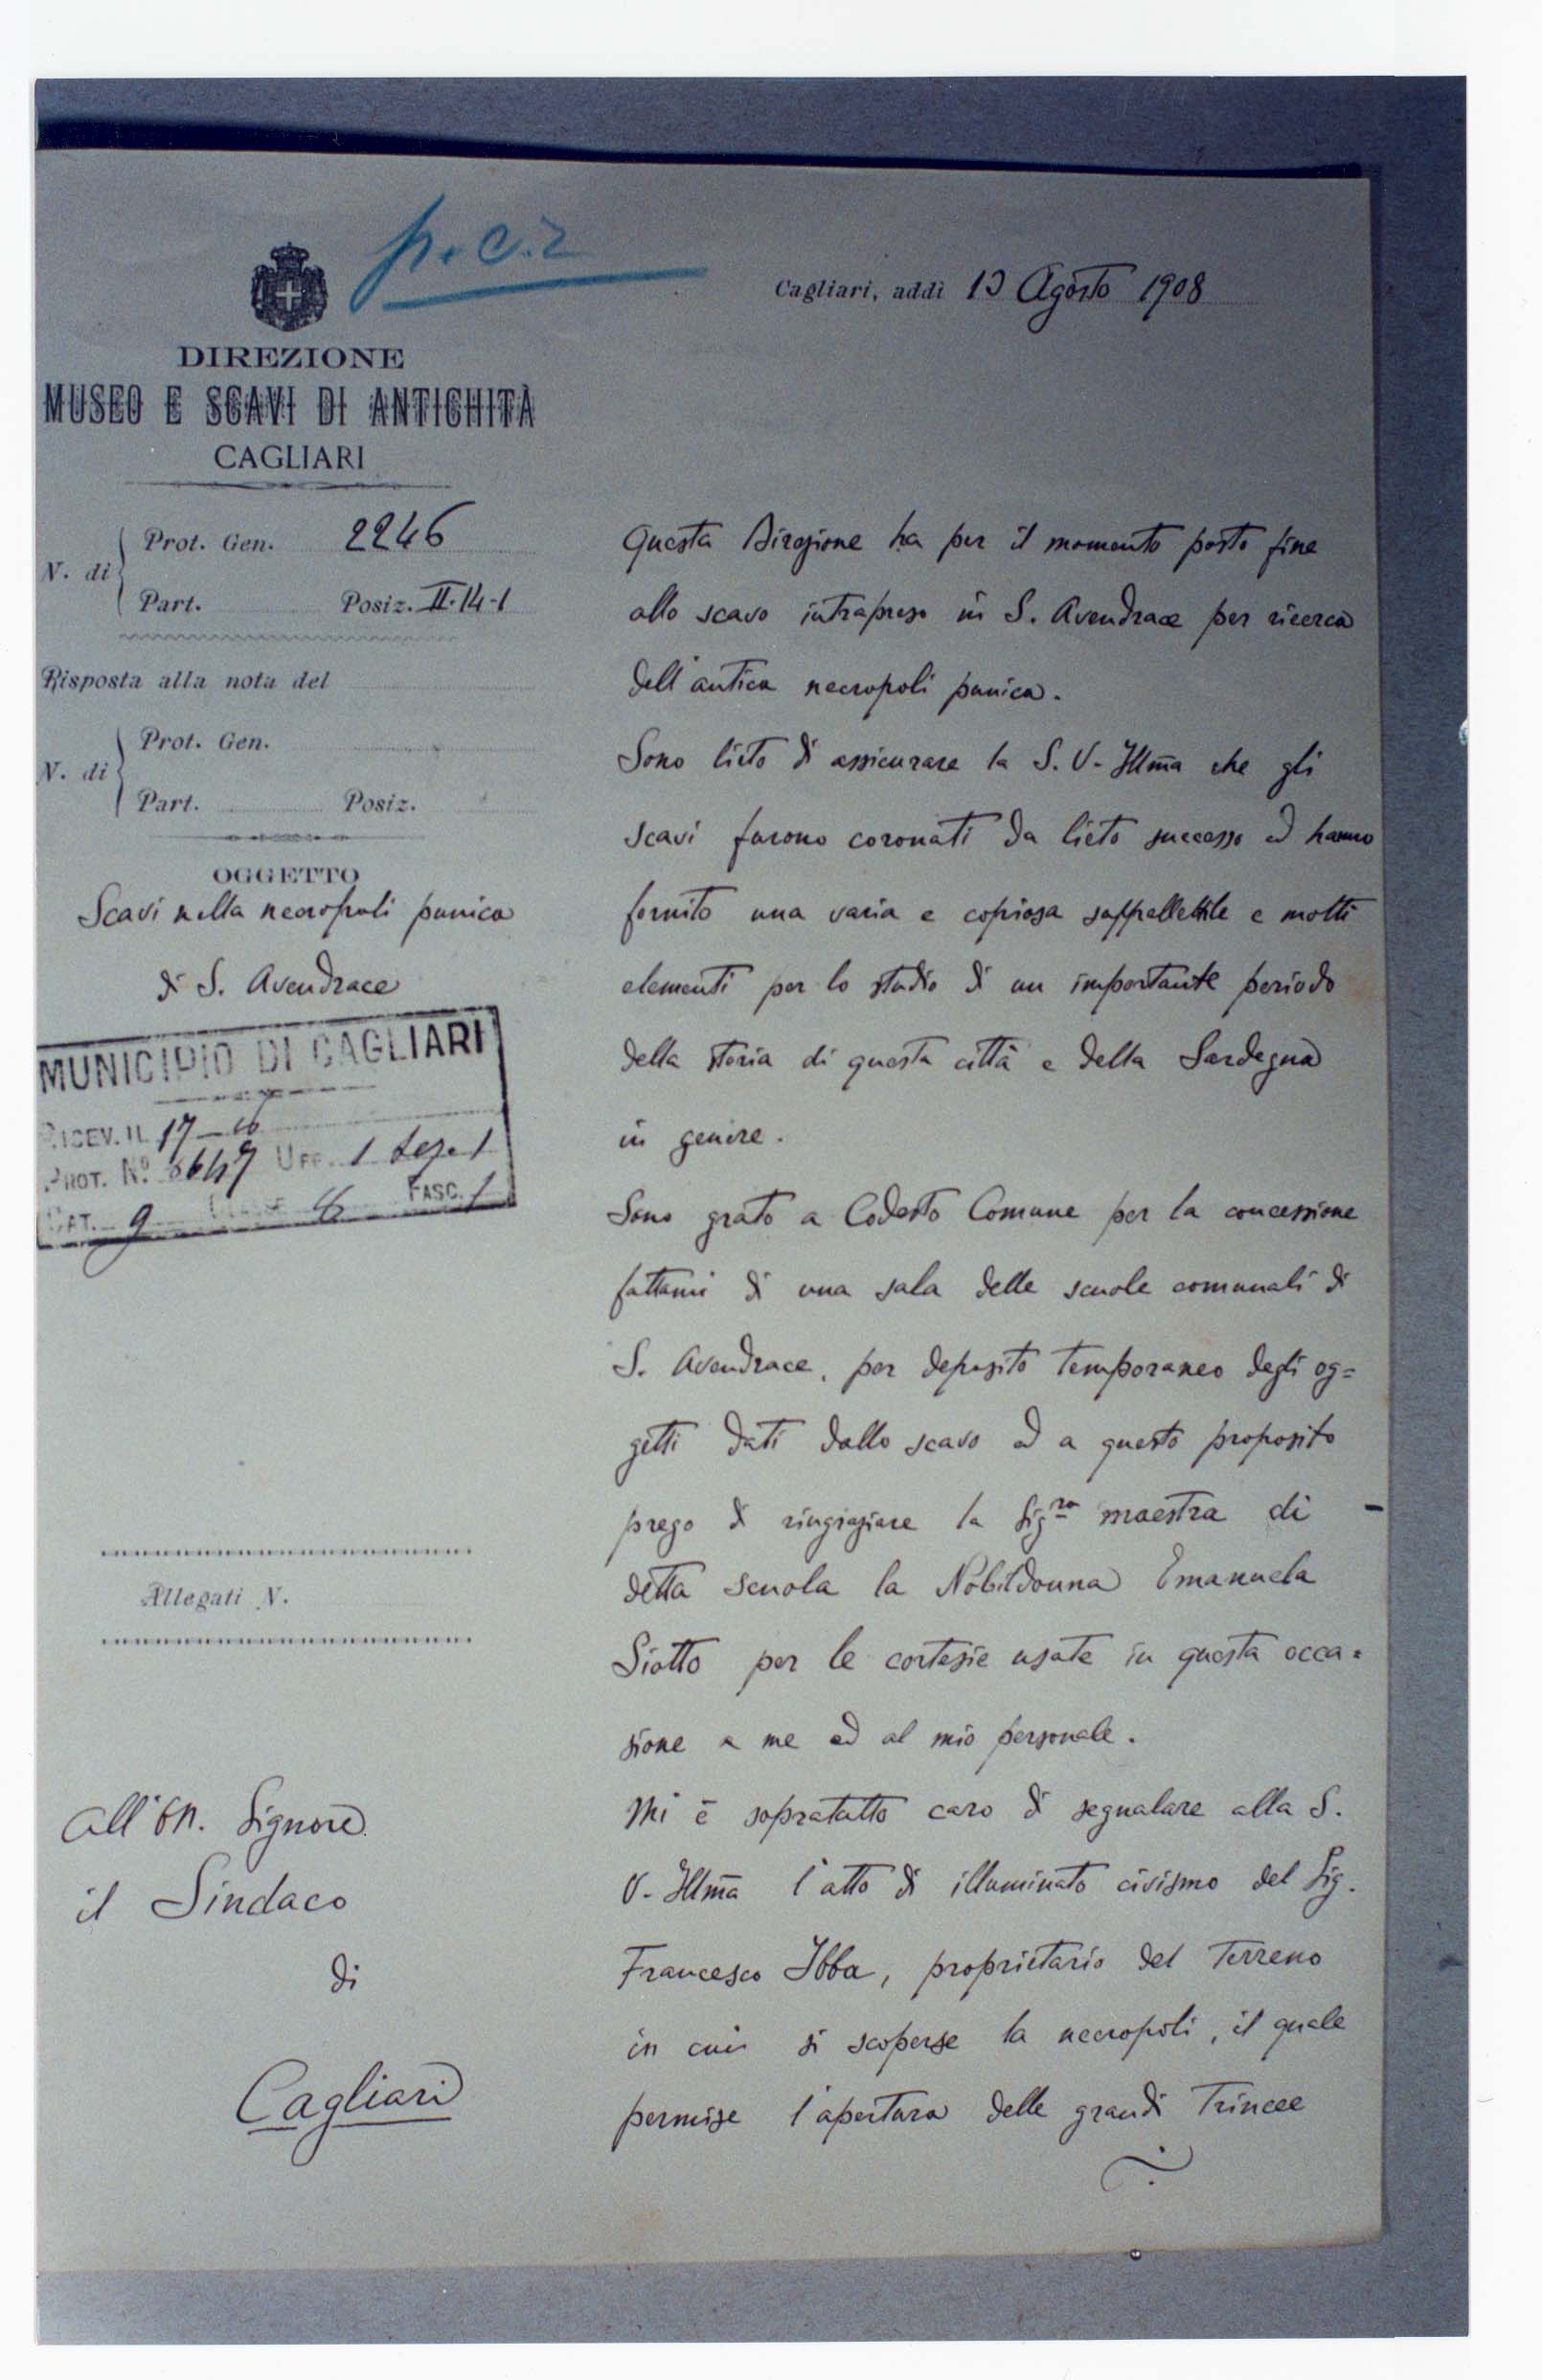 p. c. r
Cagliari, addì 13 Agosto 1908
DIREZIONE
MUSEO E SCAVI DI ANTICHITÀ
CAGLIARI
N. di
Prot. Gen. 2246
Part. Posiz. II-14-1
Risposta alla nota del
N. di
Prot. Gen.
Part. Posiz.
OGGETTO
Scavi nella necropoli punica
di S. Avendrace
MUNICIPIO DI CAGLIARI
RICEV. IL 17
PROT. Nº UFF. 1 Sez. 1
CAT. 9 CLASSE FASC. 1
Allegati N.
All'On. Signore
il Sindaco
di
Cagliari
Questa Direzione ha per il momento posto fine
allo scavo intrapreso in S. Avendrace per ricerca
dell'antica necropoli punica.
Sono lieto di assicurare la S. V. Illma che gli
scavi furono coronati da lieto successo ed hanno
fornito una varia e copiosa suppellettile e molti
elementi per lo studio di un importante periodo
della storia di questa città e della Sardegna
in genere.
Sono grato a Codesto Comune per la concessione
fattami di una sala delle scuole comunali di
S. Avendrace, per deposito temporaneo degli og=
getti dati dallo scavo ed a questo proposito
prego di ringraziare la Sigra maestra di
detta scuola la Nobildonna Emanuela
Siotto per le cortesie usate in questa occa=
sione a me ed al mio personale.
Mi è sopratutto caro di segnalare alla S.
V. Illma l'atto di illuminato civismo del Sig.
Francesco Ibba, proprietario del terreno
in cui si scoperse la necropoli, il quale
permise l'apertura delle grandi trincee